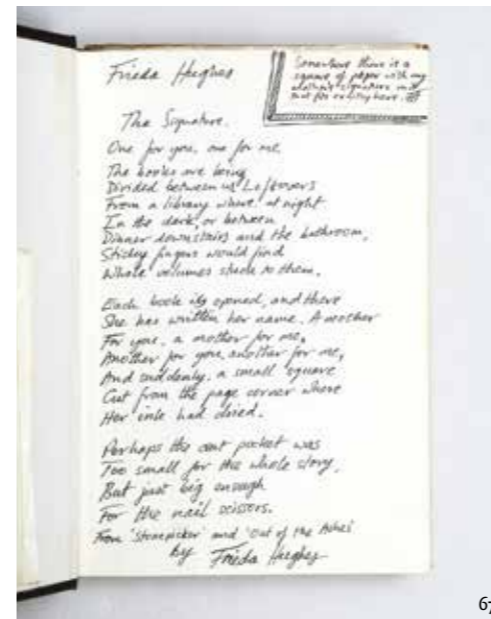 Frieda Hughes
Somewhere there is a
square of paper with my
mother's signature on it
that fits exactly here. FH
The Signature.
One for you, one for me,
The books are being
Divided between us. Leftovers
From a library where, at night
In the dark, or between
Dinner downstairs and the bathroom,
Sticky fingers would find
Whole volumes stuck to them.
Each book is opened, and there
She has written her name. A mother
For you, a mother for me,
Another for you, another for me,
And suddenly, a small square
Cut from the page corner where
Her ink had dried.
Perhaps the coat pocket was
Too small for the whole story,
But just big enough
For the nail scissors.
From 'Stonepicker' and 'Out of the Ashes'
by Frieda Hughes
67